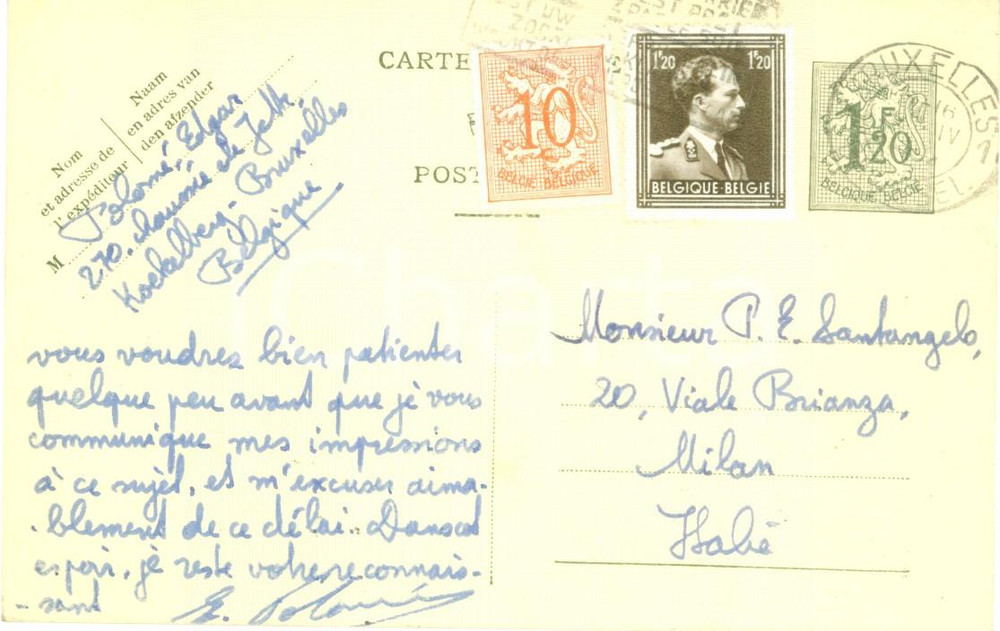 CARTE
POST
10
BELGIE-BELGIQUE
1F20
1F20
BELGIQUE-BELGIE
1F20
BELGIQUE-BELGIE
Nom
et adresse de
l'expéditeur
Naam
en adres van
den afzender
M
Polomé, Edgar
270, chaussée de Jette,
Koekelberg-Bruxelles
Belgique
vous voudrez bien patienter
quelque peu avant que je vous
communique mes impressions
à ce sujet, et m'excuser aima-
-blement de ce délai. Dans cet
espoir, je reste votre reconnais-
-sant
E. Polomé
Monsieur P. E. Santangelo,
20, Viale Brianza,
Milan
Italie